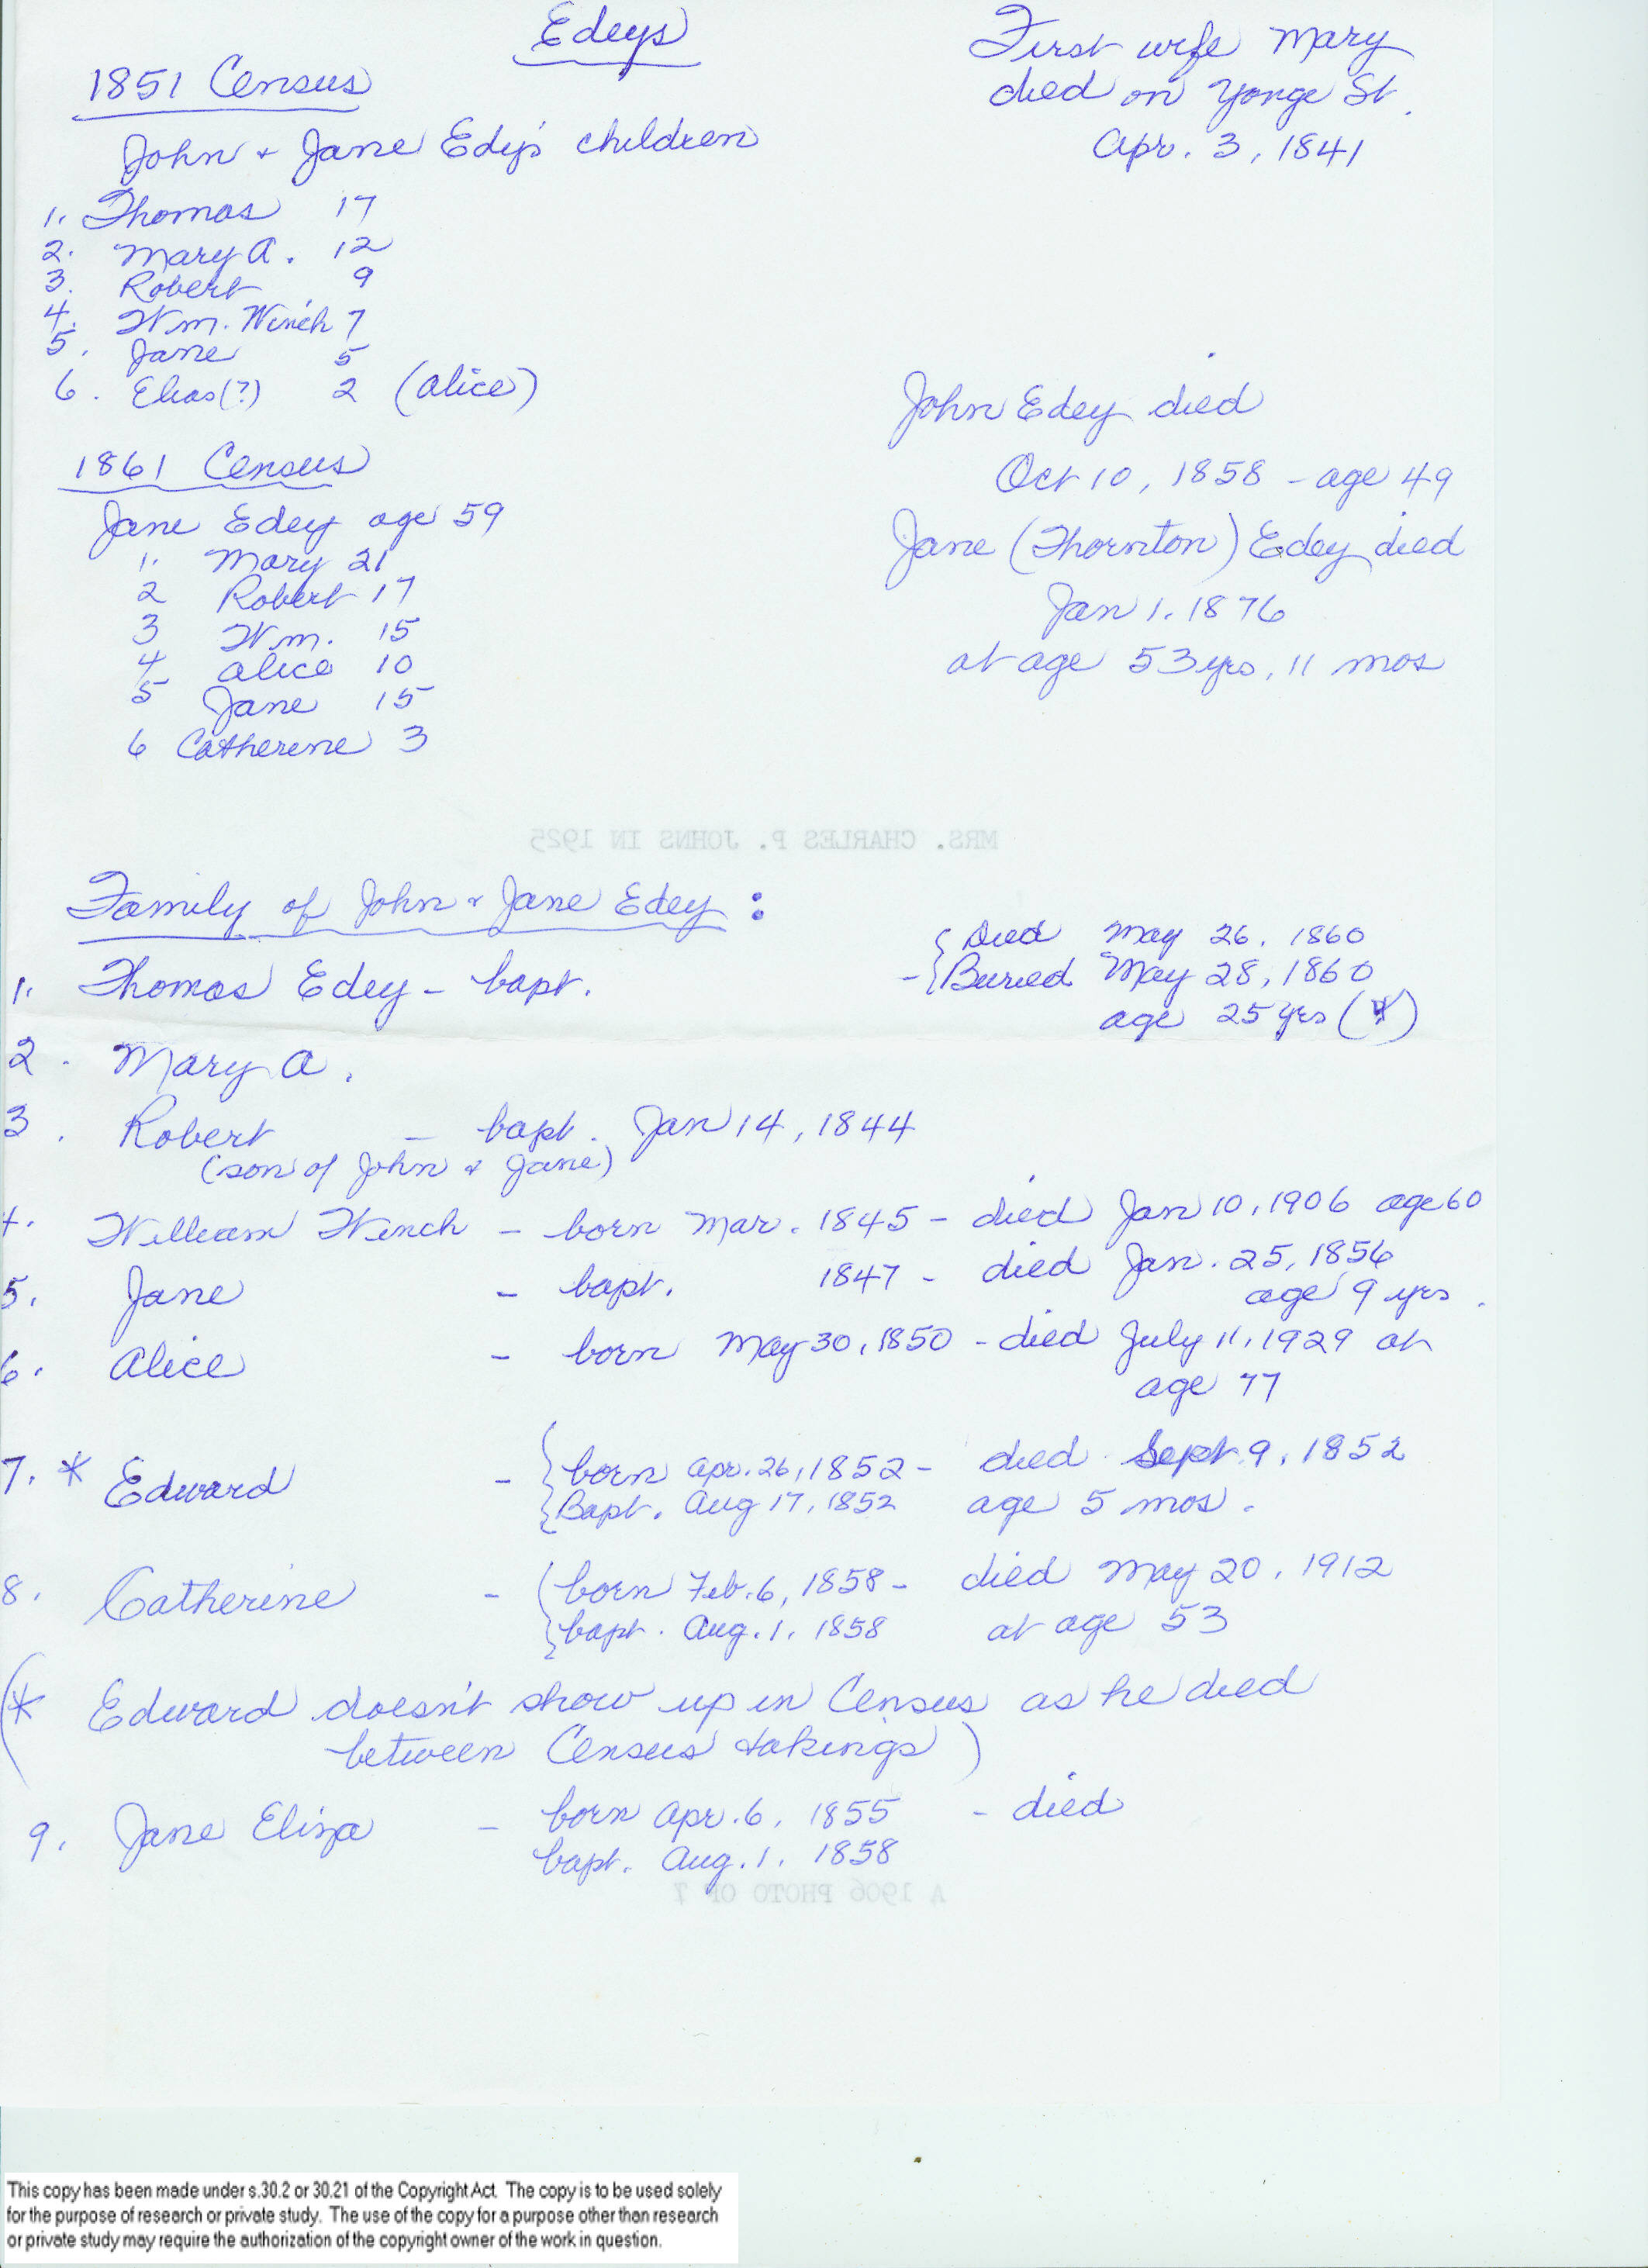 Edeys
First wife Mary
died on Yonge St.
Apr. 3, 1841
1851 Census
John + Jane Edy's children
1. Thomas 17
2. Mary A. 12
3. Robert 9
4. Wm. Winch 7
5. Jane 5
6. Elias(?) 2 (Alice)
1861 Census
Jane Edey age 59
1. Mary 21
2 Robert 17
3 Wm. 15
4 Alice 10
5 Jane 15
6 Catherine 3
John Edey died
Oct 10, 1858 - age 49
Jane (Thornton) Edey died
Jan 1. 1876
at age 53 yrs, 11 mos
MRS. CHARLES P. JOHNS IN 1925
Family of John + Jane Edey :
1. Thomas Edey - bapt. - { Died May 26, 1860
{ Buried May 28, 1860
age 25 yrs
2. Mary A.
3. Robert - bapt. Jan 14, 1844
(son of John + Jane)
4. William Winch - born Mar. 1845 - died Jan 10, 1906 age 60
5. Jane - bapt. 1847 - died Jan. 25, 1856
age 9 yrs.
6. Alice - born May 30, 1850 - died July 11, 1929 at
age 77
7. * Edward - { born Apr. 26, 1852 - died Sept. 9, 1852
{ Bapt. Aug 17, 1852 age 5 mos.
8. Catherine - ( born Feb. 6, 1858 - died May 20, 1912
{ bapt. Aug. 1. 1858 at age 53
(* Edward doesn't show up in Census as he died
between Census takings)
9. Jane Eliza - born Apr. 6, 1855 - died
bapt. Aug. 1. 1858
A 1906 PHOTO OF
This copy has been made under s.30.2 or 30.21 of the Copyright Act. The copy is to be used solely
for the purpose of research or private study. The use of the copy for a purpose other than research
or private study may require the authorization of the copyright owner of the work in question.